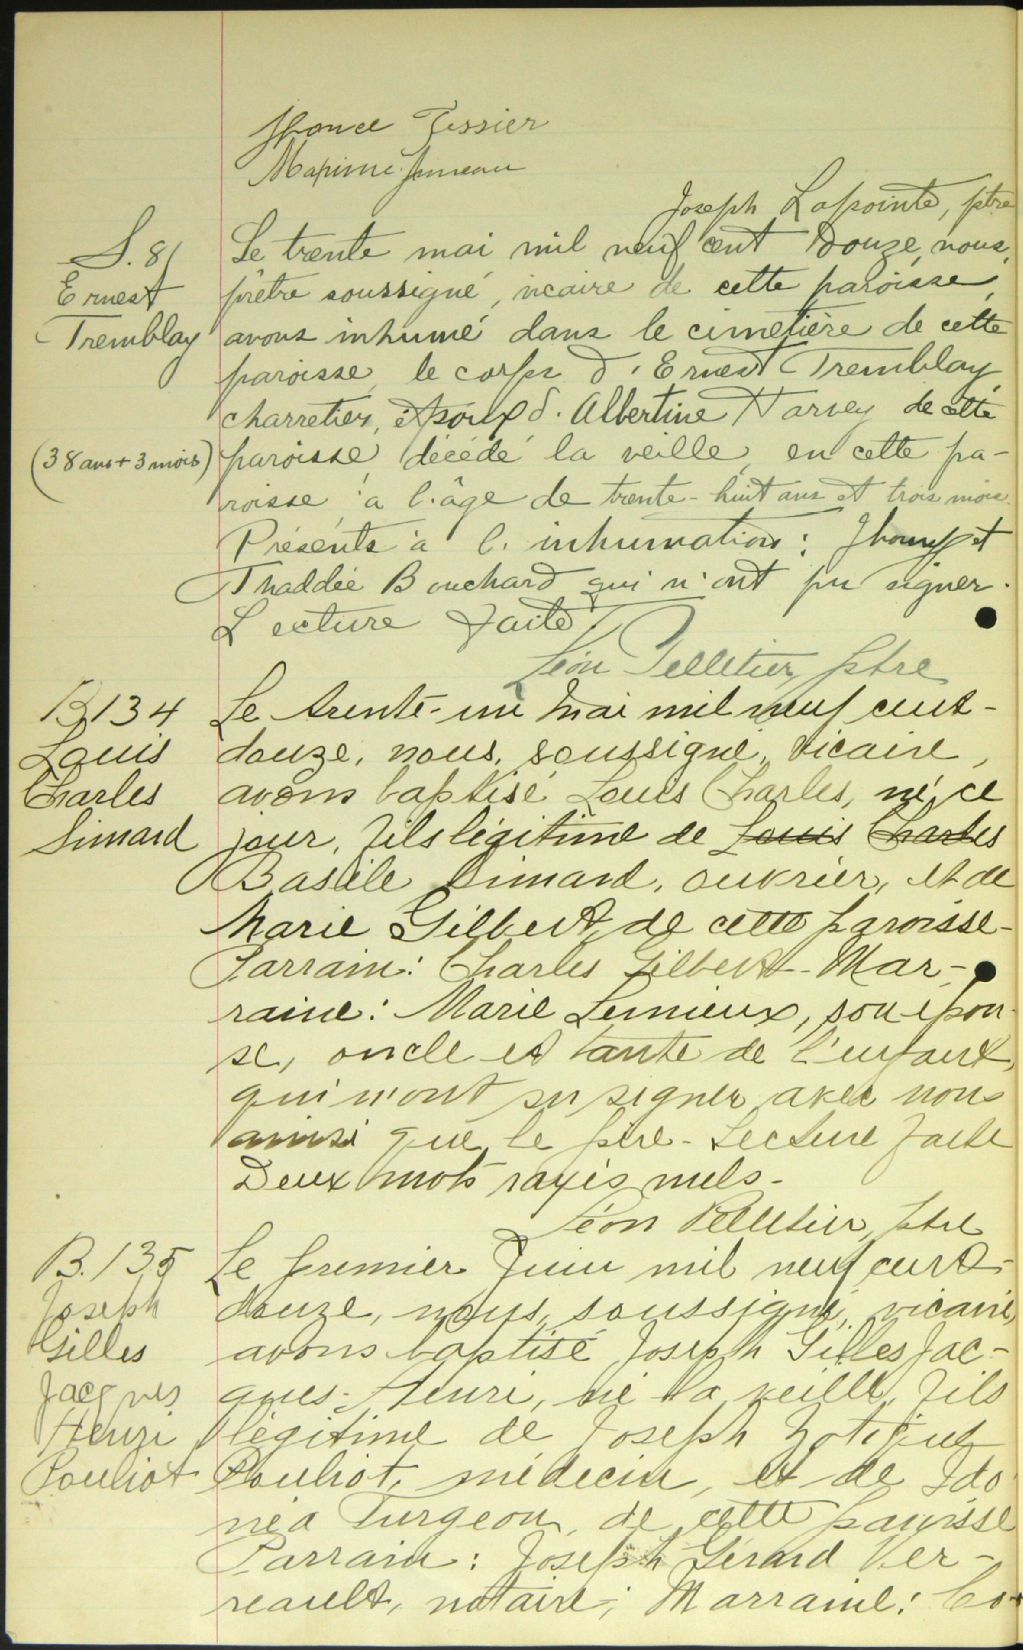 Tessier
Maxime Juneau
Joseph Lapointe, ptre
S. 8
Ernest
Tremblay
(38 ans + 3 mois)
Le trente mai mil neuf cent Douze, nous,
prêtre soussigné, vicaire de cette paroisse,
avons inhumé dans le cimetière de cette
paroisse, le corps d'Ernest Tremblay
charretier, époux d'Albertine Harvey de cette
paroisse, décédé la veille, en cette pa-
roisse à l'âge de trente-huit ans et trois mois.
Présents à l'inhumation: et
Thaddée Bouchard qui n'ont pu signer.
Lecture faite
Léon Pelletier, ptre
B. 134
Louis
Charles
Simard
Le trente-un Mai mil neuf cent-
douze, nous, soussigné, vicaire,
avons baptisé Louis Charles, né, ce
jour, fils légitime de Louis Charles
Basile Simard, ouvrier, et de
Marie Gilbert, de cette paroisse-
Parrain: Charles Gilbert- Mar-
raine: Marie Lemieux, son épou-
se, oncle et tante de l'enfant,
qui n'ont su signer avec nous
ainsi que le père- Lecture faite
Deux mots rayés nuls-
Léon Pelletier, ptre
B. 135
Joseph
Gilles
Jacques
Henri
Pouliot
Le premier Juin mil neuf cent-
douze, nous, soussigné, vicaire,
avons baptisé Joseph Gilles Jac-
ques-Henri, né la veille, fils
légitime de Joseph Zotique
Pouliot, médecin, et de Ido
néa Turgeon, de cette paroisse
Parrain: Joseph Gérard Ver-
reault, notaire; Marraine: Co-